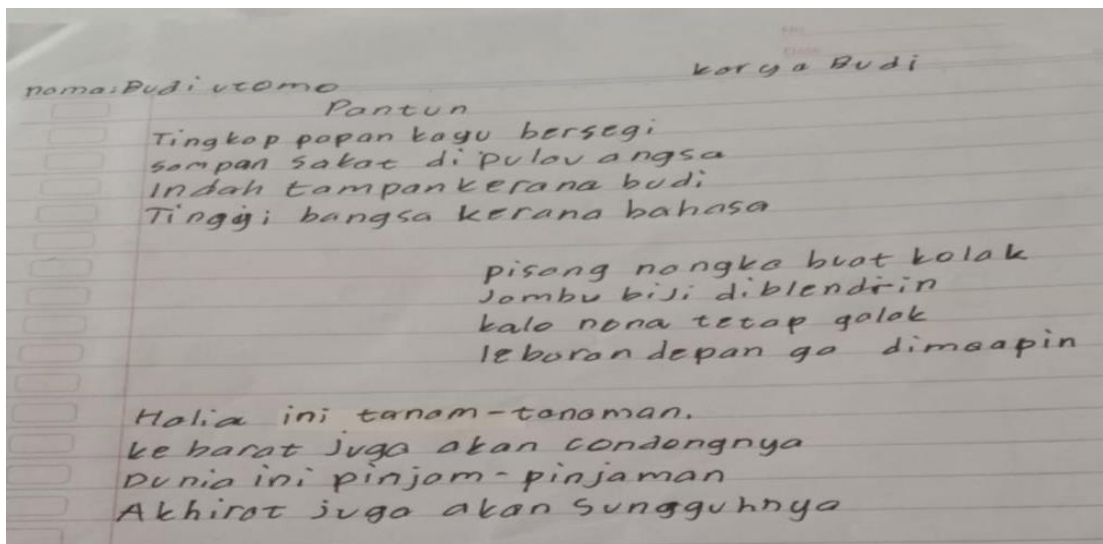 karya Budi
nama: Budi utomo
Pantun
Tingkap papan kayu bersegi
sampan sakat di pulau angsa
Indah tampan kerana budi
Tinggi bangsa kerana bahasa
pisang nangka buat kolak
Jambu biji diblendrin
kalo nona tetap galak
lebaran depan ga dimaapin
Halia ini tanam-tanaman.
ke barat juga akan condongnya
Dunia ini pinjam-pinjaman
Akhirat juga akan sungguhnya